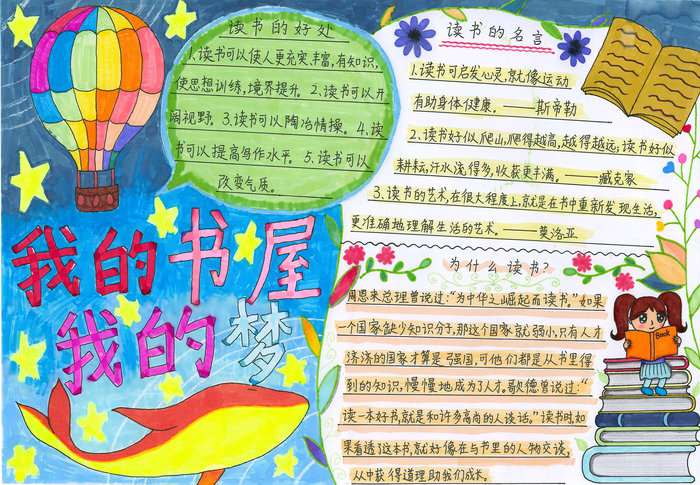 读书的好处
1.读书可以使人更充实、丰富,有知识,
使思想训练,境界提升。2.读书可以开
阔视野。3.读书可以陶冶情操。4.读
书可以提高写作水平。5.读书可以
改变气质。
我的书屋
我的梦
读书的名言
1.读书可启发心灵,就像运动
有助身体健康。——斯帝勒
2.读书好似爬山,爬得越高,越得越远;读书好似
耕耘,汗水浇得多,收获更丰满。——臧克家
3.读书的艺术,在很大程度上,就是在书中重新发现生活,
更准确地理解生活的艺术。——莫洛亚
为什么读书?
周恩来总理曾说过:“为中华之崛起而读书。”如果
一个国家缺少知识分子,那这个国家就弱小,只有人才
济济的国家才算是强国,可他们都是从书里得
到的知识,慢慢地成为了人才。歌德曾说过:“
读一本好书,就是和许多高尚的人谈话。”读书时,如
果看透了这本书,就好像在与书里的人物交谈,
从中获得道理助我们成长。
Book